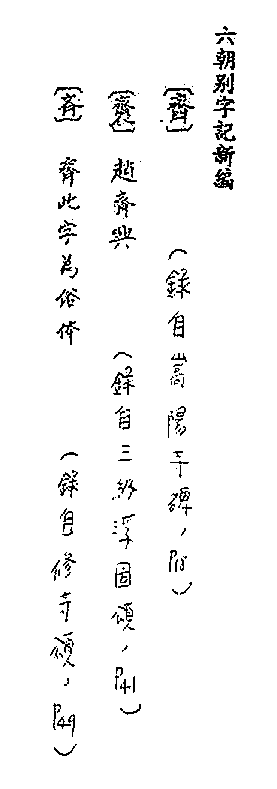 六朝别字記新編
[齊] (錄自嵩陽寺碑，P18)
[齊] 趙齊興 (錄自三級浮圖頌，P41)
[斉] 齊此字為俗体 (錄自修寺頌，P49)